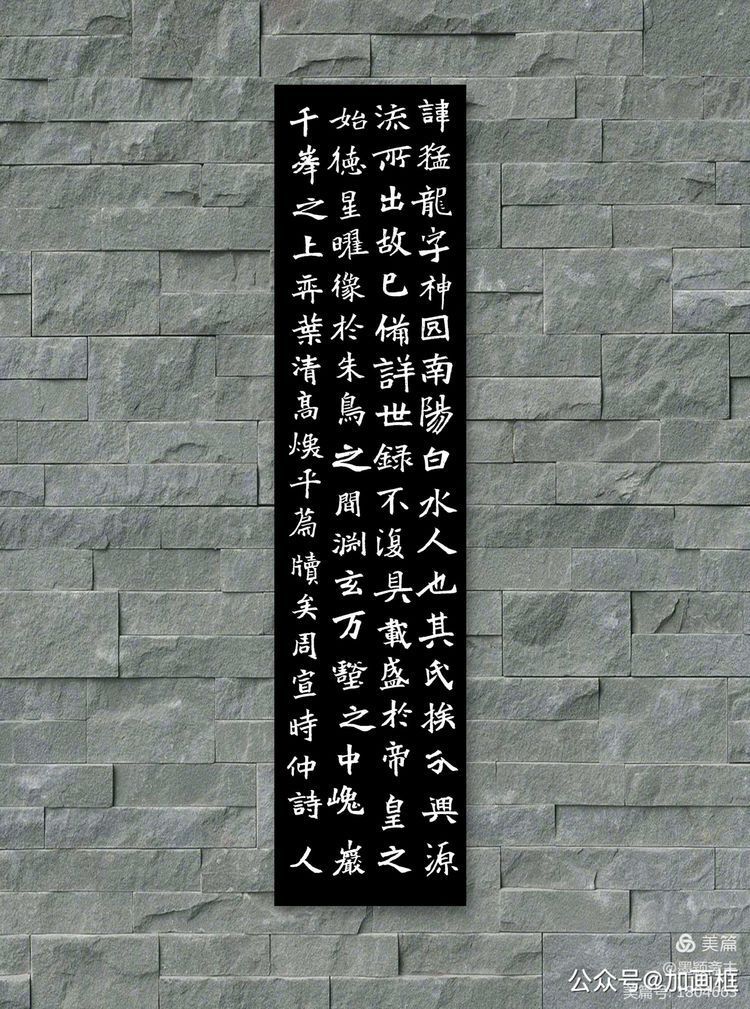 諱猛龍字神囧南陽白水人也其氏族分興源
流所出故已備詳世録不復具載盛於帝皇之
始德星曜像於朱鳥之間淵玄万壑之中巉巖
千峯之上弈葉清高煥乎篇牘矣周宣時仲詩人
美篇
公众号@加画框